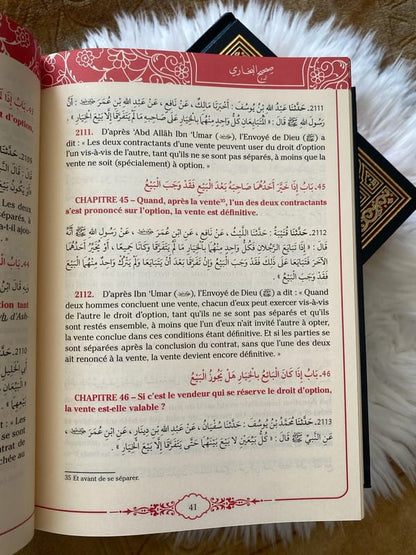 صحيح البخاري
2111. حَدَّثَنَا عَبْدُ اللَّهِ بْنُ يُوسُفَ: أَخْبَرَنَا مَالِكٌ، عَنْ نَافِعٍ، عَنْ عَبْدِ اللَّهِ بْنِ عُمَرَ : أَنَّ
رَسُولَ اللَّهِ ﷺ قَالَ: « الْمُتَبَايِعَانِ كُلُّ وَاحِدٍ مِنْهُمَا بِالْخِيَارِ عَلَى صَاحِبِهِ مَا لَمْ يَتَفَرَّقَا إِلَّا بَيْعَ الْخِيَارِ ».
2111. D'après 'Abd Allâh Ibn 'Umar (), l'Envoyé de Dieu (ﷺ) a
dit : « Les deux contractants d'une vente peuvent user du droit d'option
l'un vis-à-vis de l'autre, tant qu'ils ne se sont pas séparés, à moins que la
vente ne soit (spécialement) à option. »
45. بَابُ إِذَا خَيَّرَ أَحَدُهُمَا صَاحِبَهُ بَعْدَ الْبَيْعِ فَقَدْ وَجَبَ الْبَيْعُ
CHAPITRE 45 – Quand, après la vente35, l'un des deux contractants
s'est prononcé sur l'option, la vente est définitive.
2112. حَدَّثَنَا قُتَيْبَةُ: حَدَّثَنَا اللَّيْثُ، عَنْ نَافِعٍ، عَنِ ابْنِ عُمَرَ ، عَنْ رَسُولِ اللَّهِ ﷺ أَنَّهُ قَالَ:
« إِذَا تَبَايَعَ الرَّجُلَانِ فَكُلُّ وَاحِدٍ مِنْهُمَا بِالْخِيَارِ مَا لَمْ يَتَفَرَّقَا وَكَانَا جَمِيعًا، أَوْ يُخَيِّرُ أَحَدُهُمَا
الْآخَرَ فَتَبَايَعَا عَلَى ذَلِكَ فَقَدْ وَجَبَ الْبَيْعُ، وَإِنْ تَفَرَّقَا بَعْدَ أَنْ يَتَبَايَعَا وَلَمْ يَتْرُكْ وَاحِدٌ مِنْهُمَا الْبَيْعَ
فَقَدْ وَجَبَ الْبَيْعُ ».
2112. D'après Ibn 'Umar (), l'Envoyé de Dieu (ﷺ) a dit : « Quand
deux hommes concluent une vente, chacun d'eux peut exercer vis-à-vis
de l'autre le droit d'option, tant qu'ils ne se sont pas séparés et qu'ils
sont restés ensemble, à moins que l'un d'eux n'ait invité l'autre à opter,
la vente conclue dans ces conditions étant définitive. Et si les parties se
sont séparées après la conclusion du contrat, sans que l'une des deux
ait renoncé à la vente, la vente devient encore définitive. »
46. بَابُ إِذَا كَانَ الْبَائِعُ بِالْخِيَارِ هَلْ يَجُوزُ الْبَيْعُ
CHAPITRE 46 – Si c'est le vendeur qui se réserve le droit d'option,
la vente est-elle valable ?
2113. حَدَّثَنَا مُحَمَّدُ بْنُ يُوسُفَ: حَدَّثَنَا سُفْيَانُ، عَنْ عَبْدِ اللَّهِ بْنِ دِينَارٍ، عَنِ ابْنِ عُمَرَ ،
عَنِ النَّبِيِّ ﷺ قَالَ: « كُلُّ بَيِّعَيْنِ لَا بَيْعَ بَيْنَهُمَا حَتَّى يَتَفَرَّقَا إِلَّا بَيْعَ الْخِيَارِ ».
35 Et avant de se séparer.
41